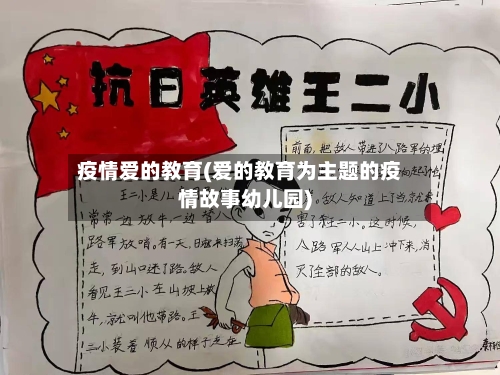 抗日英雄王二小
疫情爱的教育(爱的教育为主题的疫
情故事幼儿园)
王二小是儿
常常一边放牛,一边替八
路军放哨。有一天,日寇来扫荡
走,到山口迷了路。敌人
看见王二小在山坡上放
牛,就叫他带路。王
二小装着顺从的样子走在
前面,把敌人带进了八路军的埋
敌人知道上了当,就杀
害了王二小。这时候,
八路军从山上冲下来,消
灭了全部的敌人。